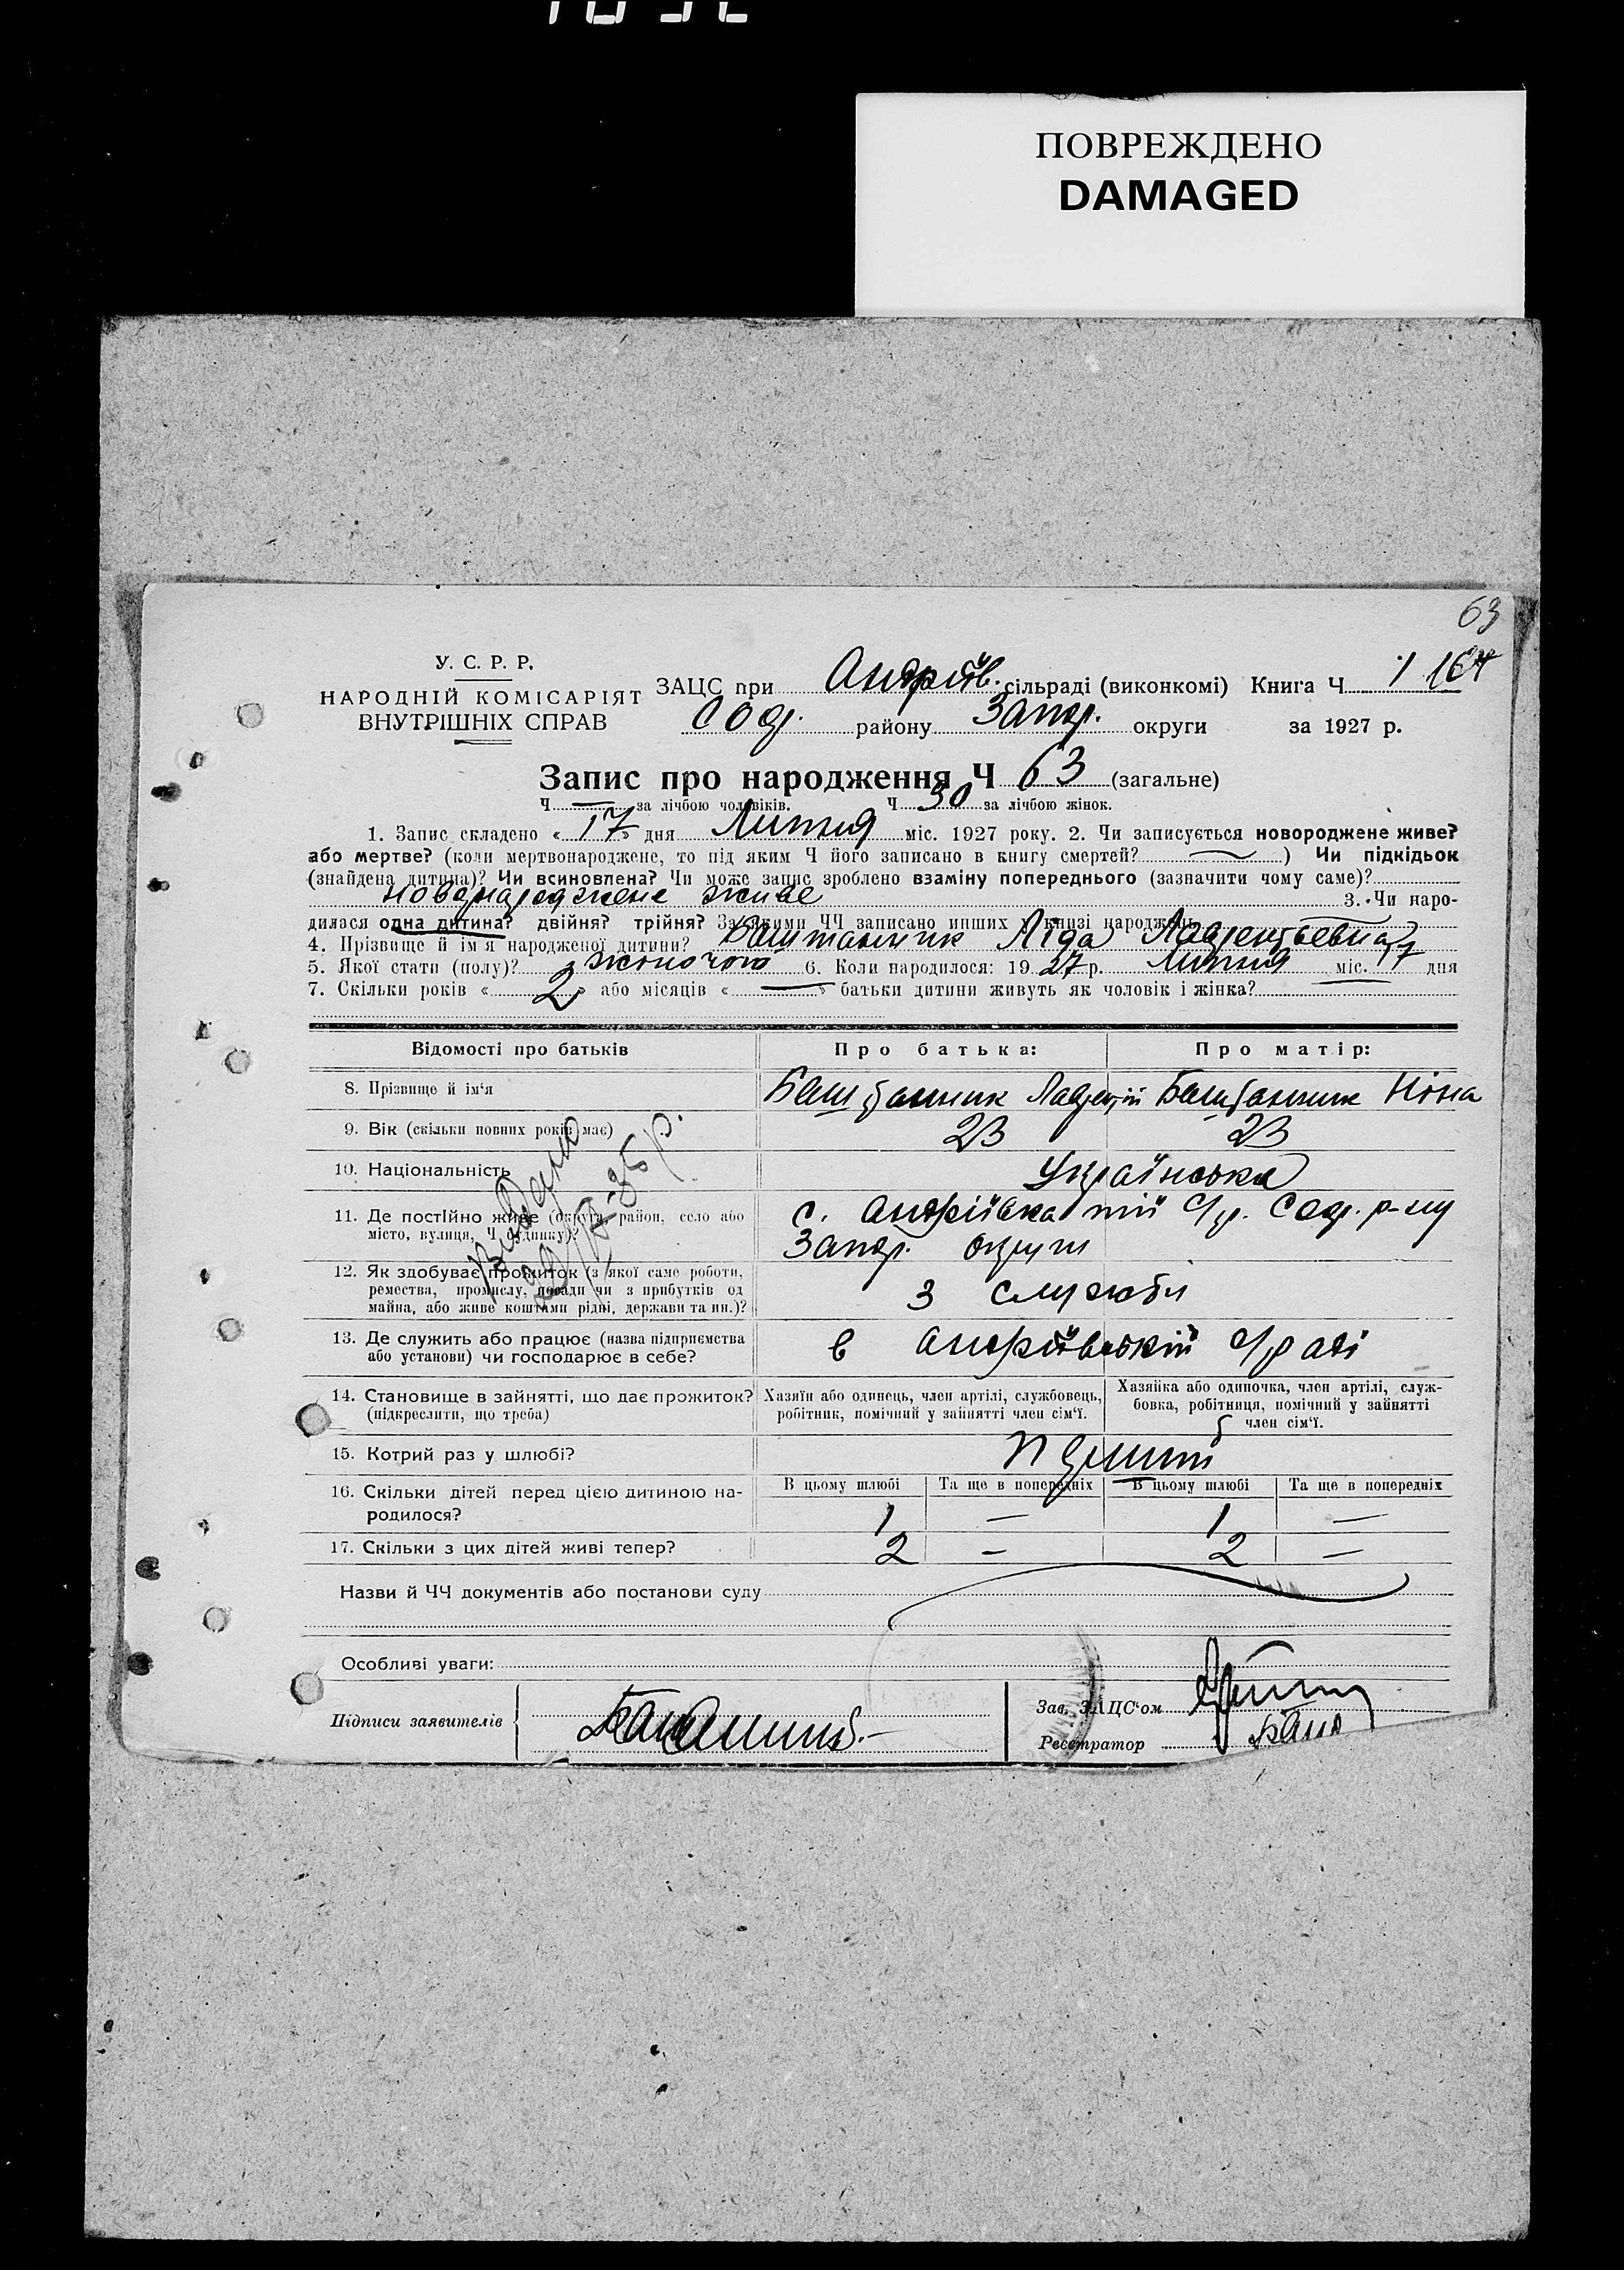 ПОВРЕЖДЕНО
DAMAGED
63
У. С. Р. Р.
НАРОДНІЙ КОМІСАРІЯТ
ВНУТРІШНІХ СПРАВ
ЗАЦС при Андріїв. сільраді (виконкомі) Книга Ч 1
Соф. району Запор. округи за 1927 р.
Запис про народження Ч 63 (загальне)
Ч — за лічбою чоловіків. Ч 30 за лічбою жінок.
1. Запис складено « 17 » дня Липня міс. 1927 року. 2. Чи записується новороджене живе?
або мертве? (коли мертвонароджене, то під яким Ч його записано в книгу смертей? — ) Чи підкідьок
(знайдена дитина)? Чи всиновлена? Чи може запис зроблено взаміну попереднього (зазначити чому саме)?
новонароджене живе 3. Чи наро-
дилася одна дитина? двійня? трійня? За якими ЧЧ записано инших у книзі народжень
4. Прізвище й ім'я народженої дитини? Баштанник Ліда Лаврентьевна
5. Якої стати (полу)? жоночою 6. Коли народилося: 1927 р. Липня міс. 17 дня
7. Скільки років « 2 » або місяців « — » батьки дитини живуть як чоловік і жінка?
Відомості про батьків
Про батька:
Про матір:
8. Прізвище й ім'я
Баштанник Лаврентій Баштанник Ніна
9. Вік (скільки повних років має)
23 23
10. Національність
Українська
11. Де постійно живе (округа, район, село або
місто, вулиця, Ч будинку)?
с. Андріївка тій с/р. Соф. р-ну
Запор. округи
Видано
12. Як здобуває прожиток (з якої саме роботи,
ремества, промислу, посади чи з прибутків од
майна, або живе коштами рідні, держави та ин.)?
З служби
13. Де служить або працює (назва підприємства
або установи) чи господарює в себе?
в Андріївській с/раді
14. Становище в зайнятті, що дає прожиток?
(підкреслити, що треба)
Хазяїн або одинець, член артілі, службовець,
робітник, помічний у зайнятті член сім'ї.
Хазяйка або одиночка, член артілі, служ-
бовка, робітниця, помічний у зайнятті
член сім'ї.
15. Котрий раз у шлюбі?
Перший
16. Скільки дітей перед цією дитиною на-
родилося?
В цьому шлюбі Та ще в попередніх В цьому шлюбі Та ще в попередніх
1 — 1 —
17. Скільки з цих дітей живі тепер?
2 — 2 —
Назви й ЧЧ документів або постанови суду
Особливі уваги:
Підписи заявителів
Зав. ЗАЦС'ом
Реєстратор